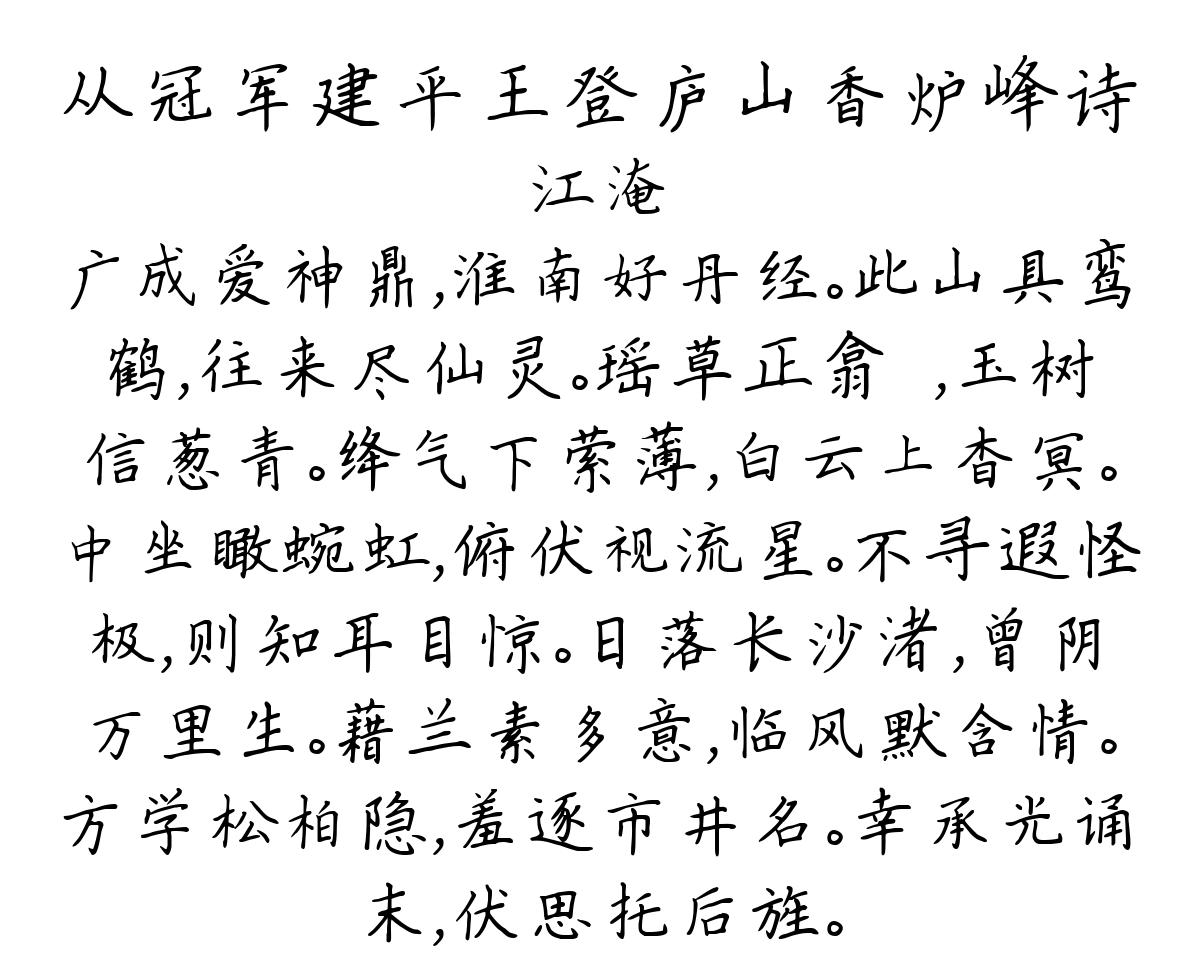 从冠军建平王登庐山香炉峰诗
江淹
广成爱神鼎,淮南好丹经。此山具鸾
鹤,往来尽仙灵。瑶草正翕 ,玉树
信葱青。绛气下萦薄,白云上杳冥。
中坐瞰蜿虹,俯伏视流星。不寻遐怪
极,则知耳目惊。日落长沙渚,曾阴
万里生。藉兰素多意,临风默含情。
方学松柏隐,羞逐市井名。幸承光诵
末,伏思托后旌。